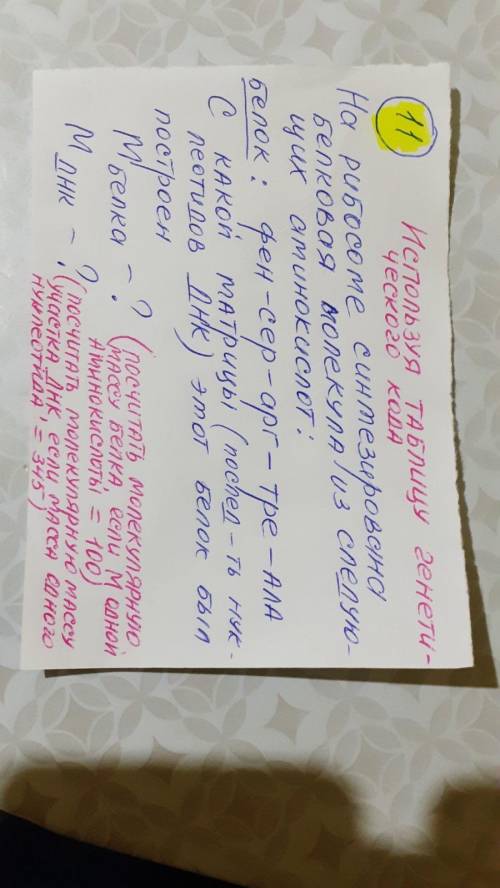 11
Используя таблицу генети-
ческого кода
На рибосоме синтезирована
белковая молекула/из следую-
щих аминокислот:
белок: фен-сер-арг-тре-ала
С какой матрицы (послед-ть нук-
леотидов ДНК) этот белок был
построен
М белка - ? (посчитать молекулярную
массу белка, если М одной
аминокислоты = 100)
М ДНК - ? (посчитать молекулярную массу
участка ДНК, если масса одного
нуклеотида = 345)